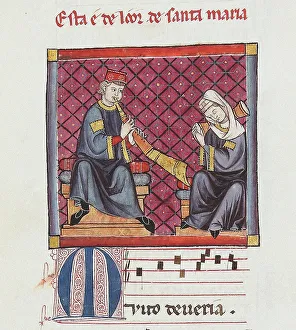 Esta é de loor de santa maria
Muito deueria.